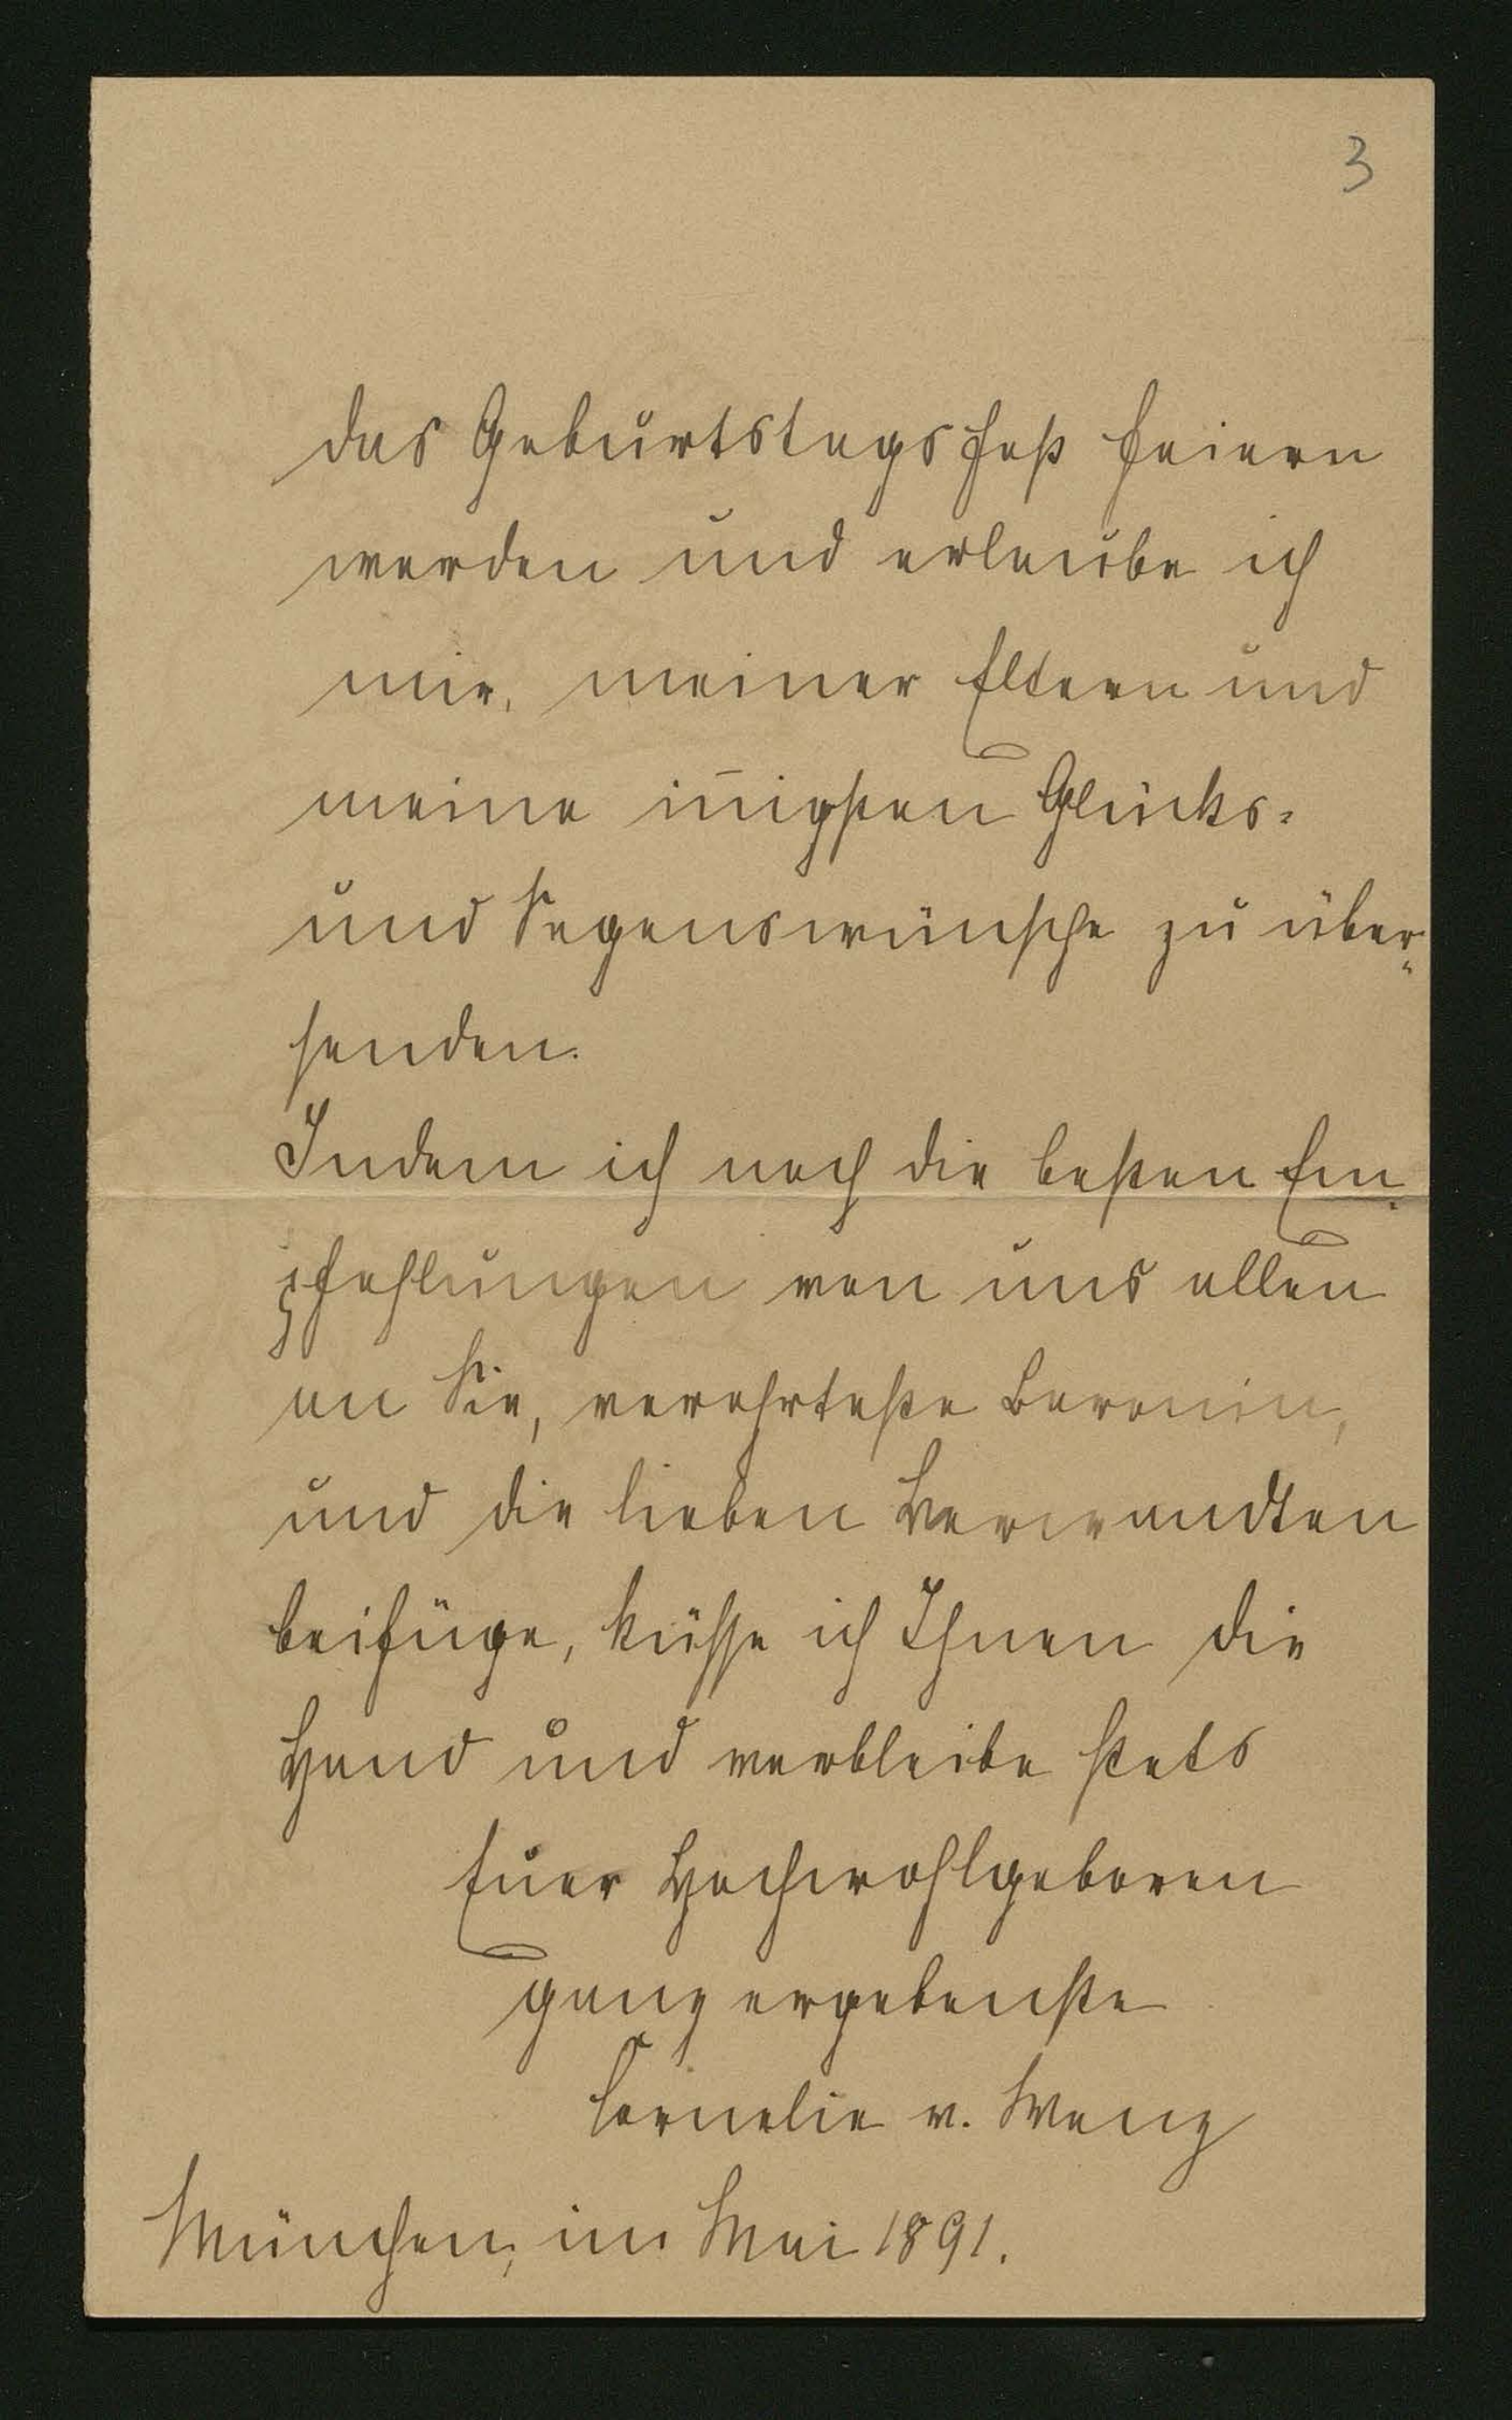 3
das Geburtstagsfest feiern
werden und erlaube ich
mir, meiner Eltern und
meine in̄igsten Glücks-
und Segenswünsche zu über-
senden.
Indem ich noch die besten Em-
pfehlungen von uns allen
an Sie, verehrteste Baronin,
und die lieben Verwandten
beifüge, küsse ich Ihnen die
Hand und verbleibe stets
Euer Hochwohlgeboren
ganz ergebenste
Cornelie v. Wenz
München, im Mai 1891.